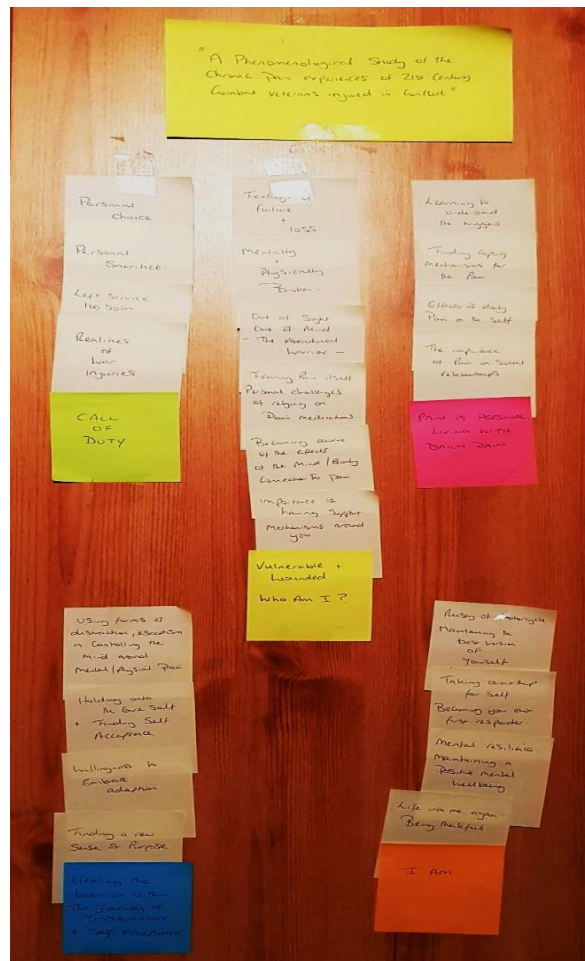 "A Phenomenological Study of the
Chronic Pain experiences of 21st Century
Combat Veterans injured in Conflict"
Personal
Choice
Personal
Sacrifice
Left Service
too Soon
Realities
of
War
Injuries
CALL
OF
DUTY
Feelings of
failure
+
loss
Mentally
+
Physically
Broken
Out of Sight
Out of Mind
- The Abandoned
Warrior -
Pain itself
Personal challenges
of relying on
Pain medications
Becoming aware
of the effects
of the Mind/Body
Connection to Pain
Importance of
having Support
Mechanisms around
you
Vulnerable +
Wounded
Who Am I?
Learning to
understand
the triggers.
Finding coping
mechanisms for
the Pain
Effects of daily
Pain on the Self
The importance
of Pain on Social
relationships
PAIN IS PERSONAL
LIVING WITH
DAILY PAIN
Using forms of
distraction, escapism
in Controlling the
Mind around
Mental/Physical Pain
Holding onto
the Core Self
+ Finding Self
Acceptance
Willingness to
Embrace
adaption
Finding a new
Sense of Purpose
Healing the
Warrior Within
The Journey of
Transformation
+ Self Acceptance
Maintaining the
best version
of
Yourself
Taking ownership
for Self
Becoming your own
first responder.
Mental resilience
Maintaining a
Positive mental
wellbeing
Life into me again
Being thankful
I AM